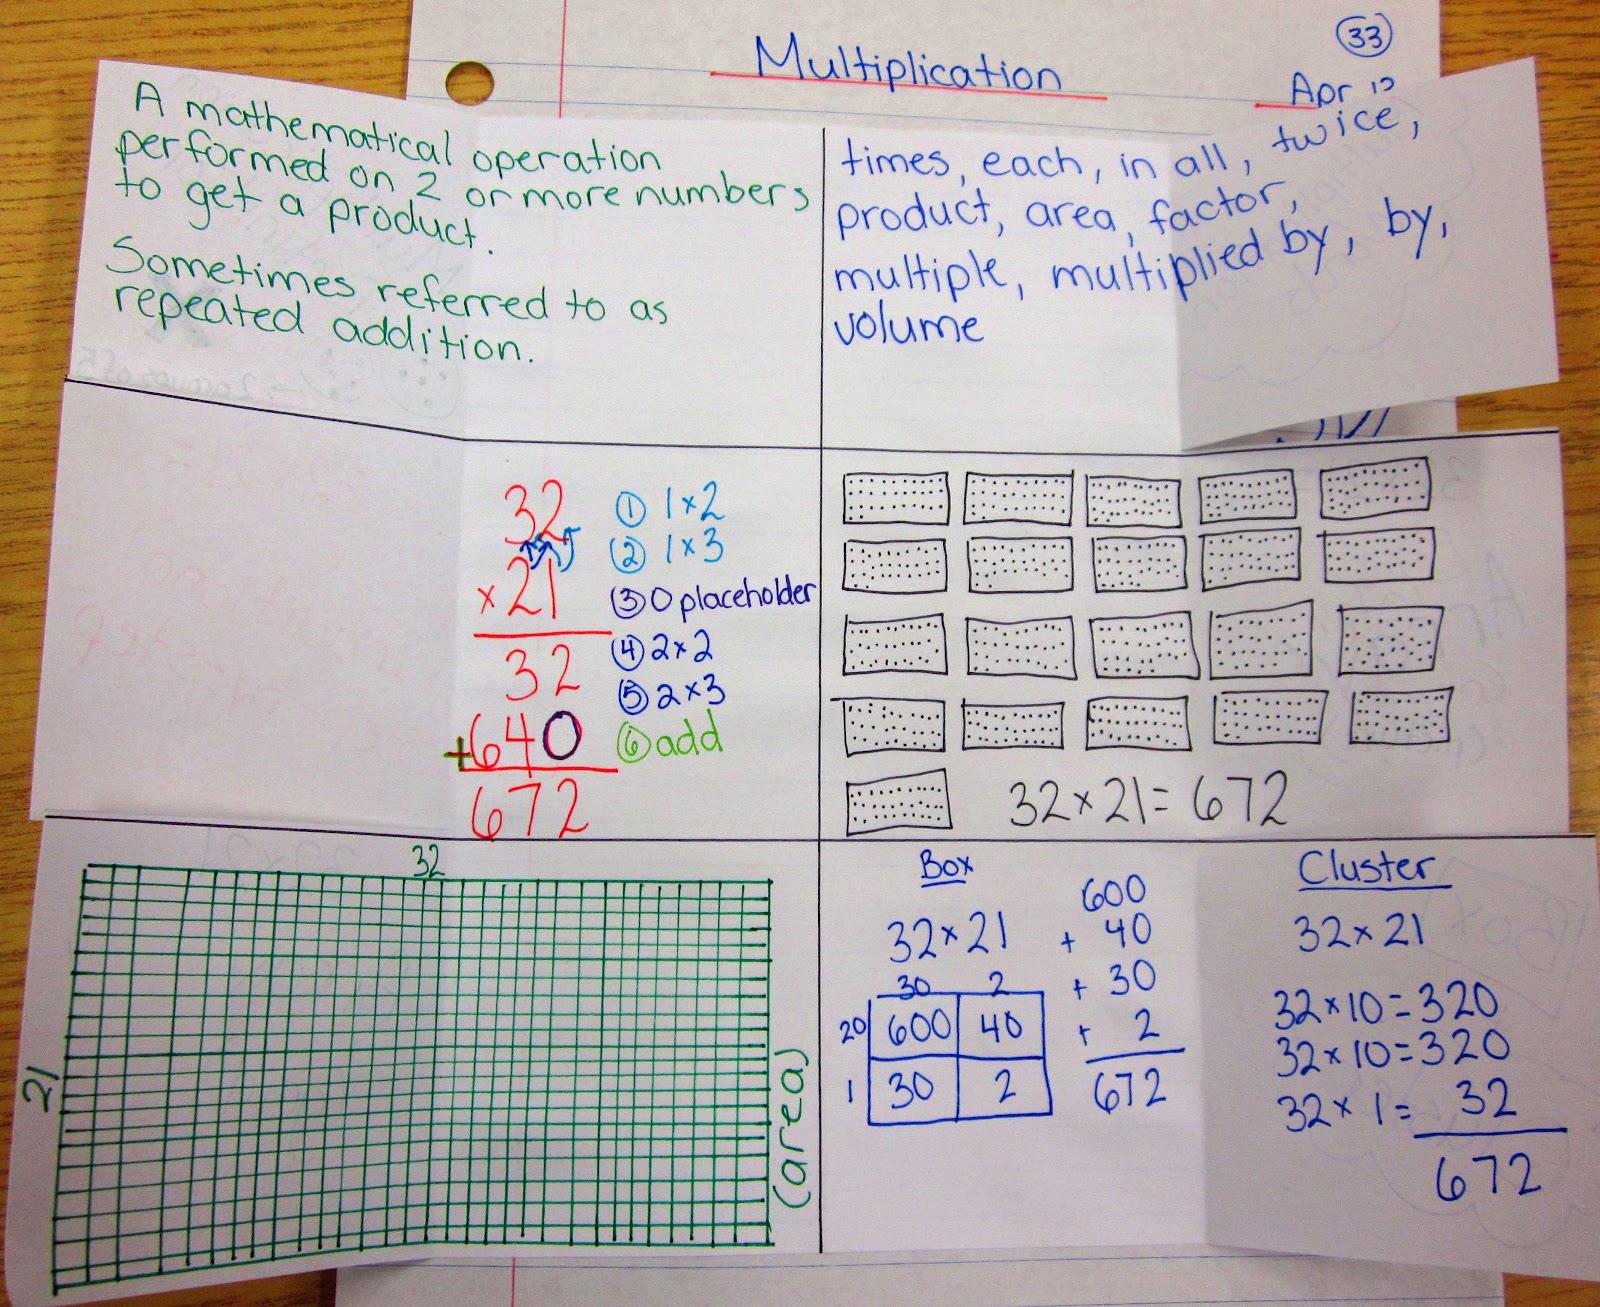 Multiplication
33
Apr
A mathematical operation
performed on 2 or more numbers
to get a product.
Sometimes referred to as
repeated addition.
times, each, in all, twice,
product, area, factor,
multiple, multiplied by, by,
volume
32
× 21
32
+640
672
① 1×2
② 1×3
③ 0 placeholder
④ 2×2
⑤ 2×3
⑥ add
32×21=672
32
21
(area)
Box
32×21
30 2
20 600 40
1 30 2
600
+ 40
+ 30
+ 2
672
Cluster
32×21
32×10=320
32×10=320
32×1=32
672